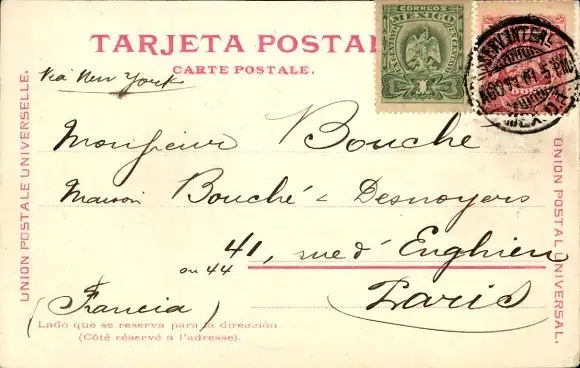 TARJETA POSTAL
CARTE POSTALE.
CORREOS
MEXICO
Via New York
Monsieur Bouché
Maison Bouché & Desnoyers
41, rue d'Enghien
ou 44
Paris
(Francia)
Lado que se reserva para la dirección
(Côté réservé à l'adresse).
UNION POSTALE UNIVERSELLE.
UNION POSTAL UNIVERSAL.